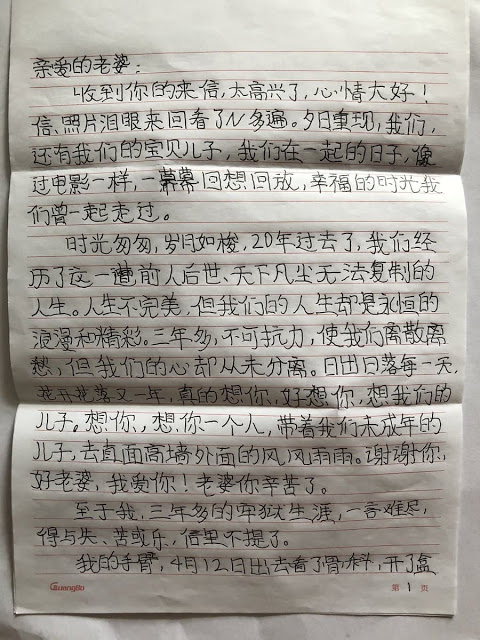 亲爱的老婆：
收到你的来信，太高兴了，心情大好！
信、照片泪眼来回看了N多遍。夕日重现，我们，
还有我们的宝贝儿子，我们在一起的日子，像
过电影一样，一幕幕回想回放，幸福的时光我
们曾一起走过。
时光匆匆，岁月如梭，20年过去了，我们经
历了这一遭前人后世、天下凡尘无法复制的
人生。人生不完美，但我们的人生却是永恒的
浪漫和精彩。三年多，不可抗力，使我们离散离
愁，但我们的心却从未分离。日出日落每一天，
花开花落又一年，真的想你，好想你，想我们的
儿子。想你，想你一个人，带着我们未成年的
儿子，去直面高墙外面的风风雨雨。谢谢你，
好老婆，我爱你！老婆你辛苦了。
至于我，三年多的牢狱生涯，一言难尽，
得与失、苦或乐，信里不提了。
我的手臂，4月12日出去看了骨科，开了盒
Guangbo
第 1 页